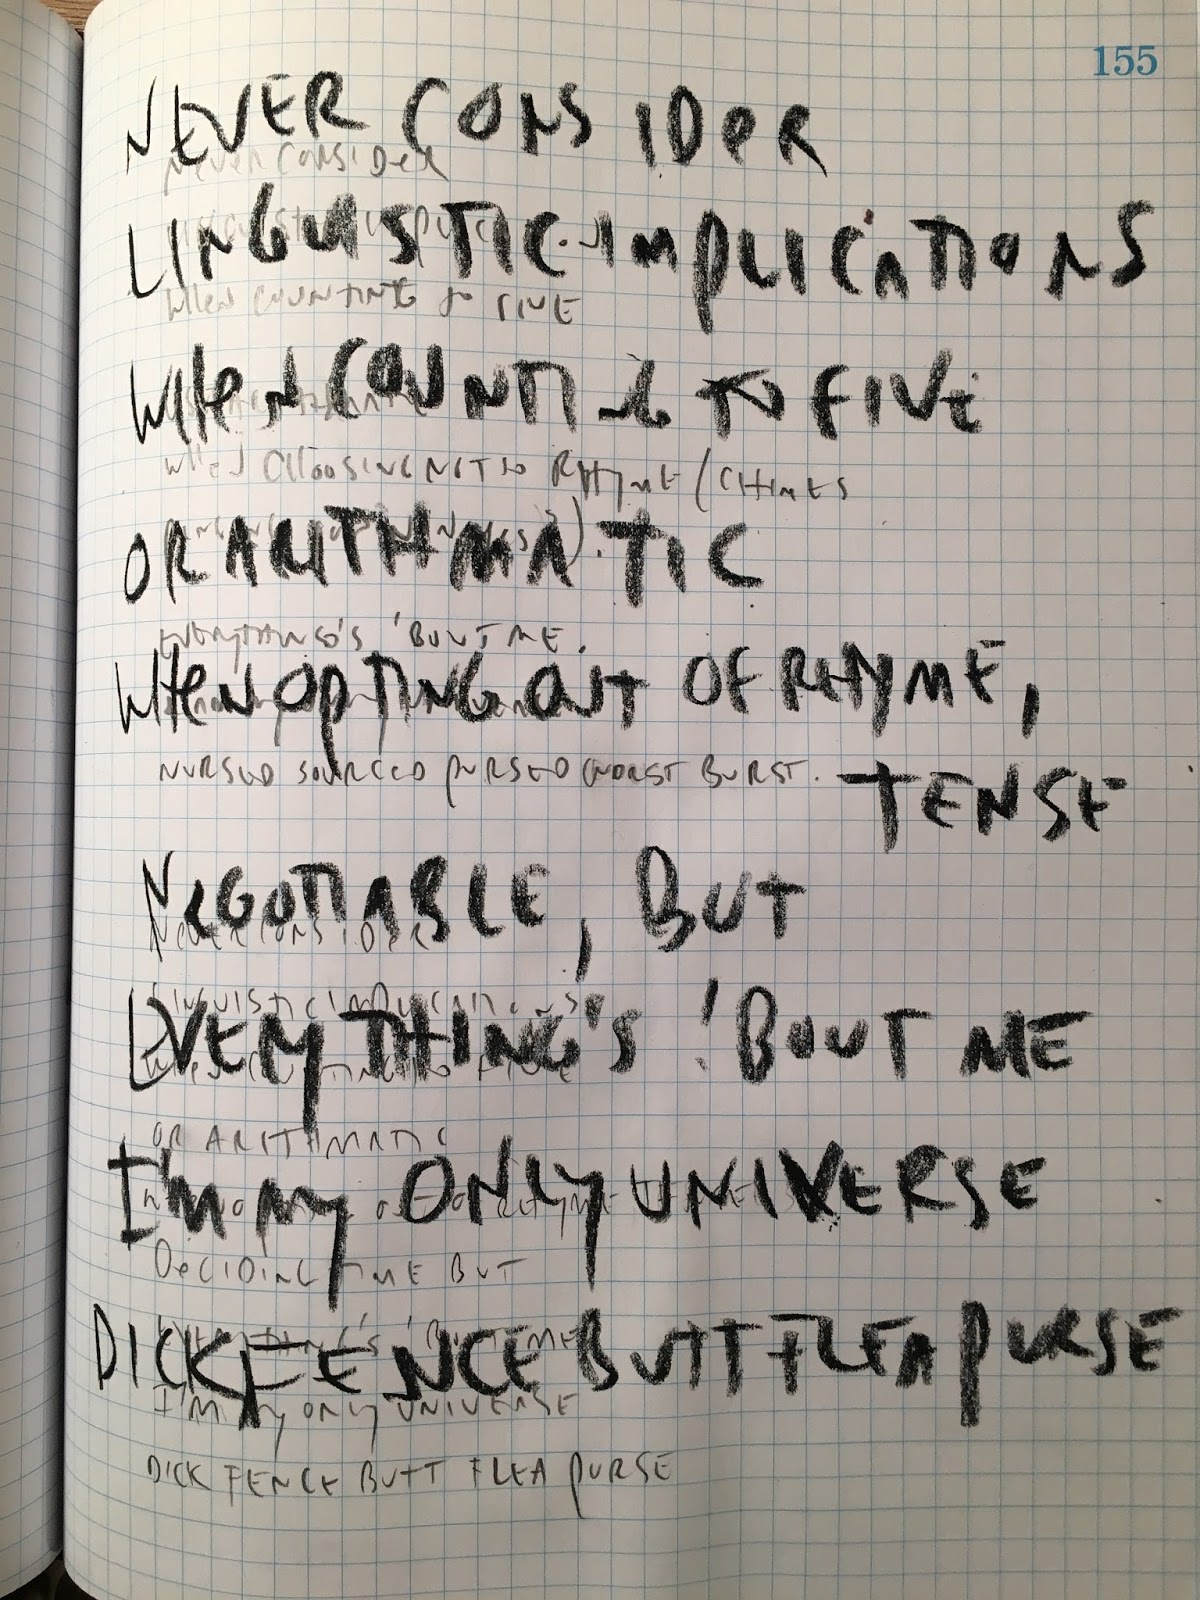 155
NEVER CONSIDER
NEVER CONSIDER
LINGUISTIC IMPLICATIONS
WHEN COUNTING TO FIVE
WHEN COUNTING TO FIVE
WHEN CHOOSING NOT TO RHYME (CHIMES
OR ARITHMATIC
EVERYTHING'S 'BOUT ME.
WHEN OPTING OUT OF RHYME,
NURSED SOURCED PURSED WORST BURST.
TENSE
NEGOTIABLE, BUT
NEVER CONSIDER
LINGUISTIC IMPLICATIONS
EVERYTHING'S 'BOUT ME
WHEN COUNTING TO FIVE
OR ARITHMATIC
I'M MY ONLY UNIVERSE
DECIDING TIME BUT
EVERYTHING'S 'BOUT ME
DICK FENCE BUTT FLEA PURSE
I'M MY ONLY UNIVERSE
DICK FENCE BUTT FLEA PURSE